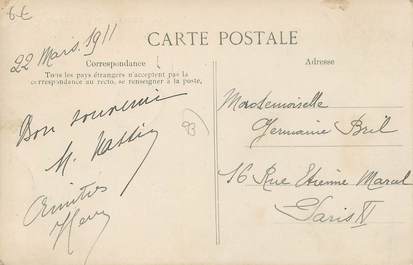 6€
22 Mars. 1911
CARTE POSTALE
Correspondance
Tous les pays étrangers n'acceptent pas la
correspondance au recto, se renseigner à la poste.
Adresse
Bon souvenir
M.
Amitiés
93
Mademoiselle
Germaine Bril
16 Rue Etienne Marcel
Paris